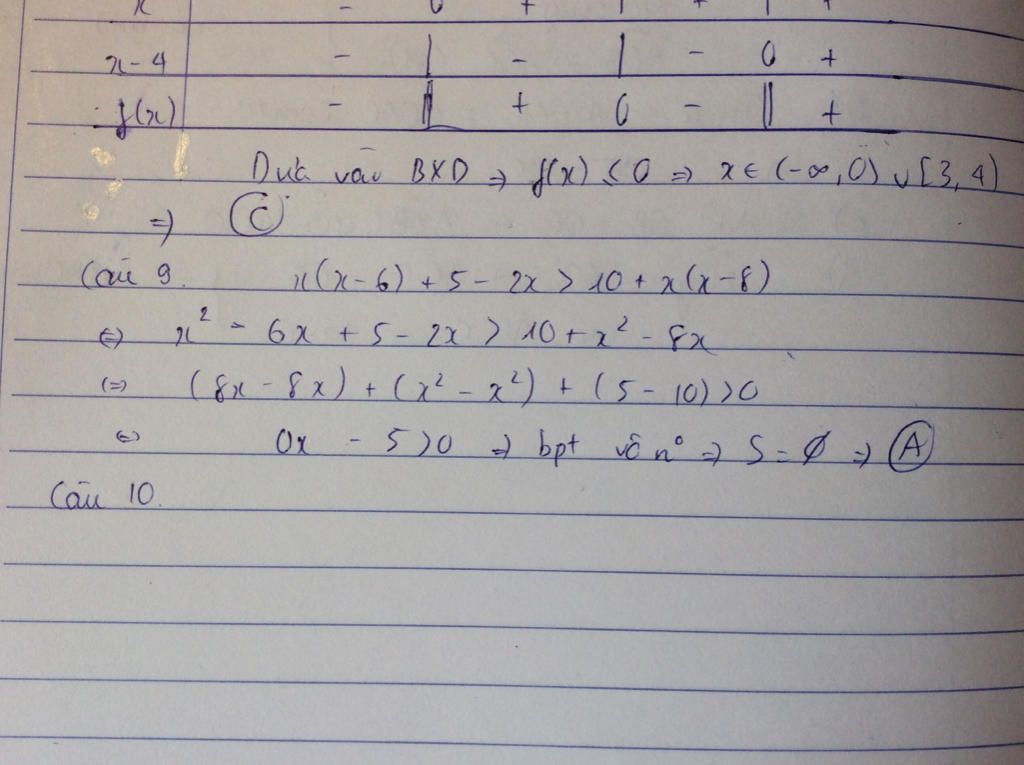 x - 0 + | + | +
x-4 - | - | - 0 +
f(x) - || + 0 - || +
Dựa vào BXD ⇒ f(x) ≤ 0 ⇒ x ∈ (-∞, 0) ∪ [3, 4)
⇒ C
Câu 9. x(x-6) + 5 - 2x > 10 + x(x-8)
⇔ x² - 6x + 5 - 2x > 10 + x² - 8x
⇔ (8x - 8x) + (x² - x²) + (5 - 10) > 0
⇔ 0x - 5 > 0 ⇒ bpt vô n° ⇒ S = ∅ ⇒ A
Câu 10.